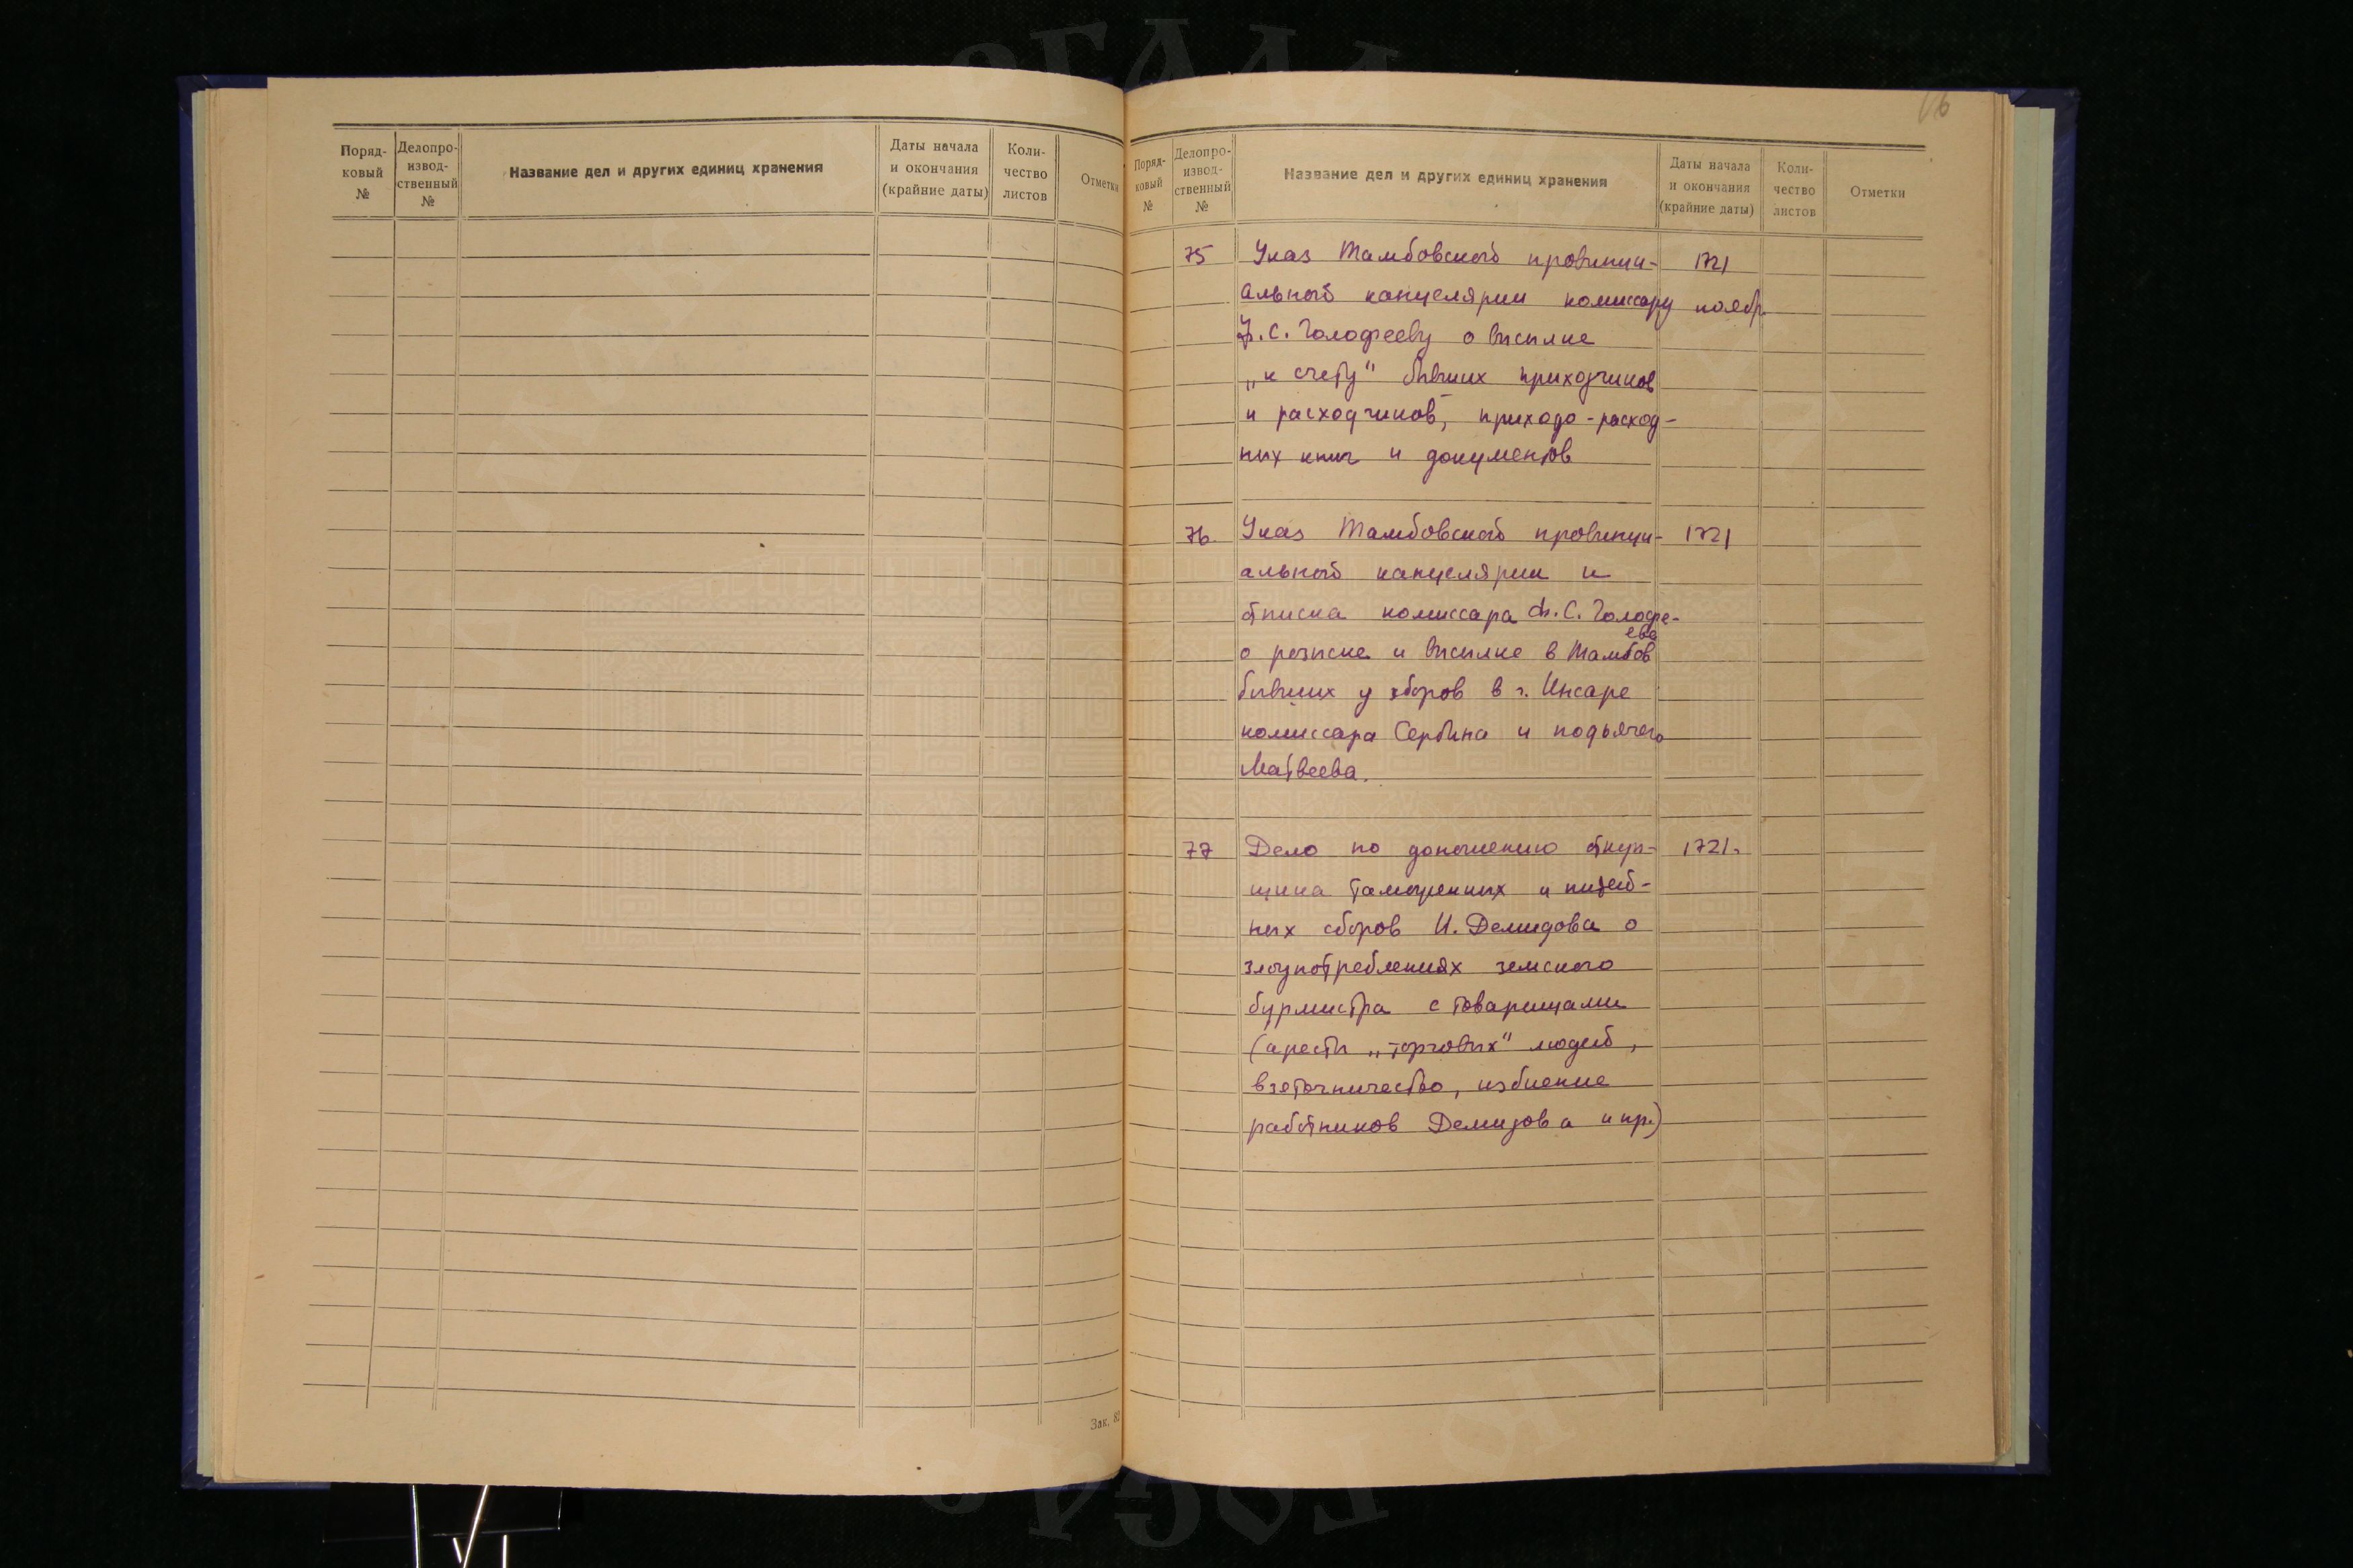 Поряд-
ковый
№
Делопро-
извод-
ственный
№
Название дел и других единиц хранения
Даты начала
и окончания
(крайние даты)
Коли-
чество
листов
Отметки
Зак. 82
16
Поряд-
ковый
№
Делопро-
извод-
ственный
№
Название дел и других единиц хранения
Даты начала
и окончания
(крайние даты)
Коли-
чество
листов
Отметки
75 Указ Тамбовской провинци- 1721
альной канцелярии комиссару ноябр.
Ф. С. Голофееву о высылке
„к счету" бывших приходчиков
и расходчиков, приходо-расход-
ных книг и документов
76. Указ Тамбовской провинци- 1721
альной канцелярии и
отписка комиссара Ф. С. Голофе-
ева
о розыске и высылке в Тамбов
бывших у сборов в г. Инсаре
комиссара Сербина и подьячего
Матвеева.
77 Дело по доношению откуп- 1721.
щика таможенных и питей-
ных сборов И. Демидова о
злоупотреблениях земского
бурмистра с товарищами
(аресты „торговых" людей,
взяточничество, избиение
работников Демидова и пр.)